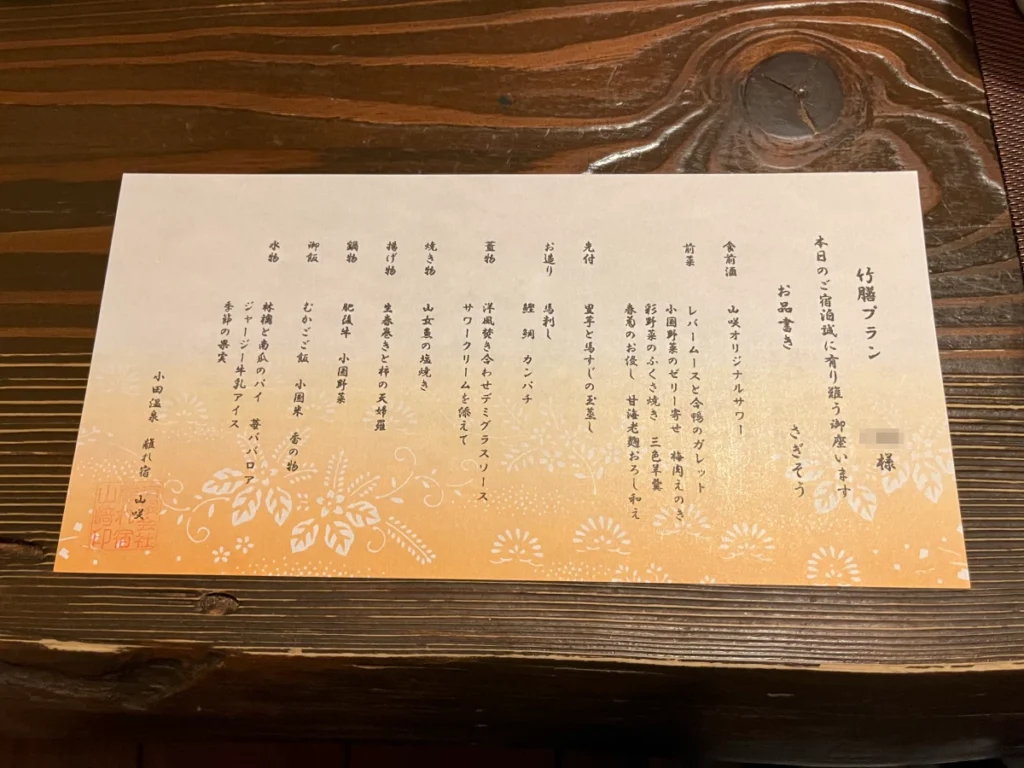 竹膳プラン
様
本日のご宿泊誠に有り難う御座います
お品書き さぎそう
食前酒 山咲オリジナルサワー
前菜 レバームースと合鴨のガレット
小国野菜のゼリー寄せ 梅肉えのき
彩野菜のふくさ焼き 三色羊羹
春菊のお浸し 甘海老麹おろし和え
先付 里芋と馬すじの玉蒸し
お造り 馬刺し
鰹 鯛 カンパチ
蓋物 洋風焚き合わせデミグラスソース
サワークリームを添えて
焼き物 山女魚の塩焼き
揚げ物 生春巻きと柿の天婦羅
鍋物 肥後牛 小国野菜
御飯 むかごご飯 小国米 香の物
水物 林檎と南瓜のパイ 苺ババロア
ジャージー牛乳アイス
季節の果実
小田温泉 離れ宿 山咲